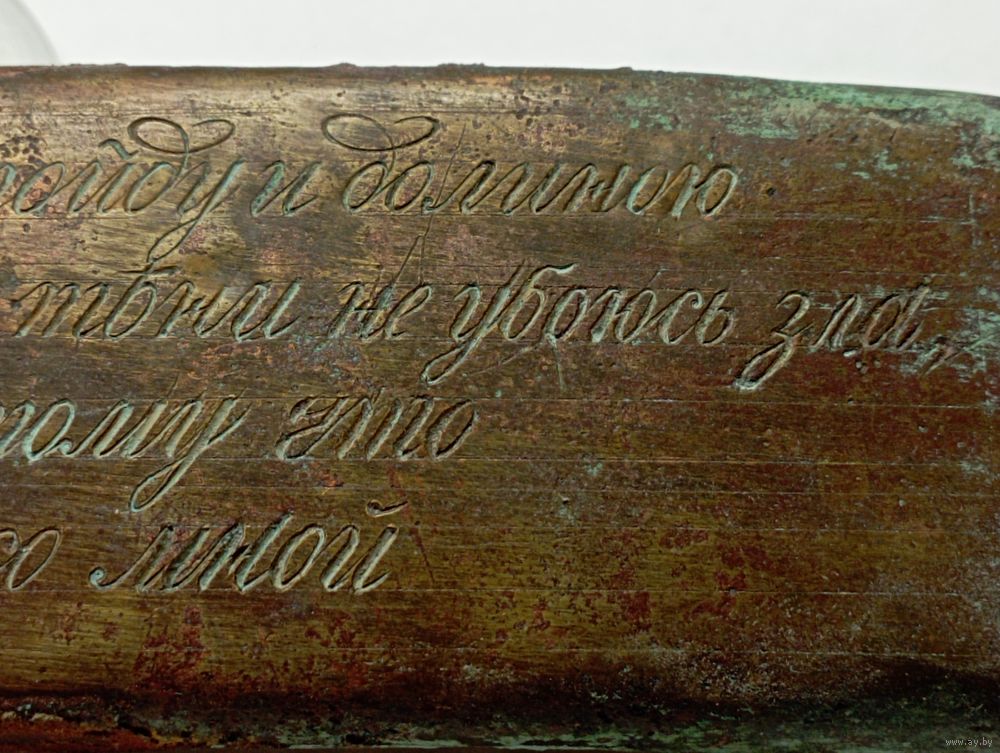 ойду и долиною
тѣни не убоюсь зла,
тому что
со мной
www.ay.by